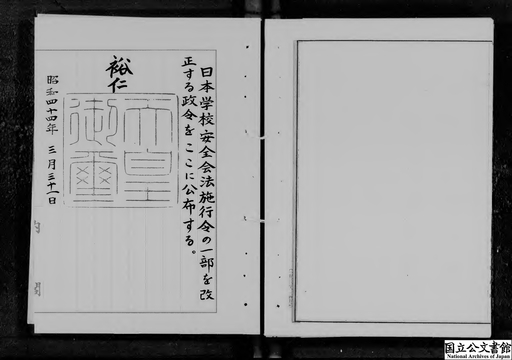 日本学校安全会法施行令の一部を改
正する政令をここに公布する。
裕仁
天皇
御璽
昭和四十四年三月三十一日
国立公文書館
National Archives of Japan